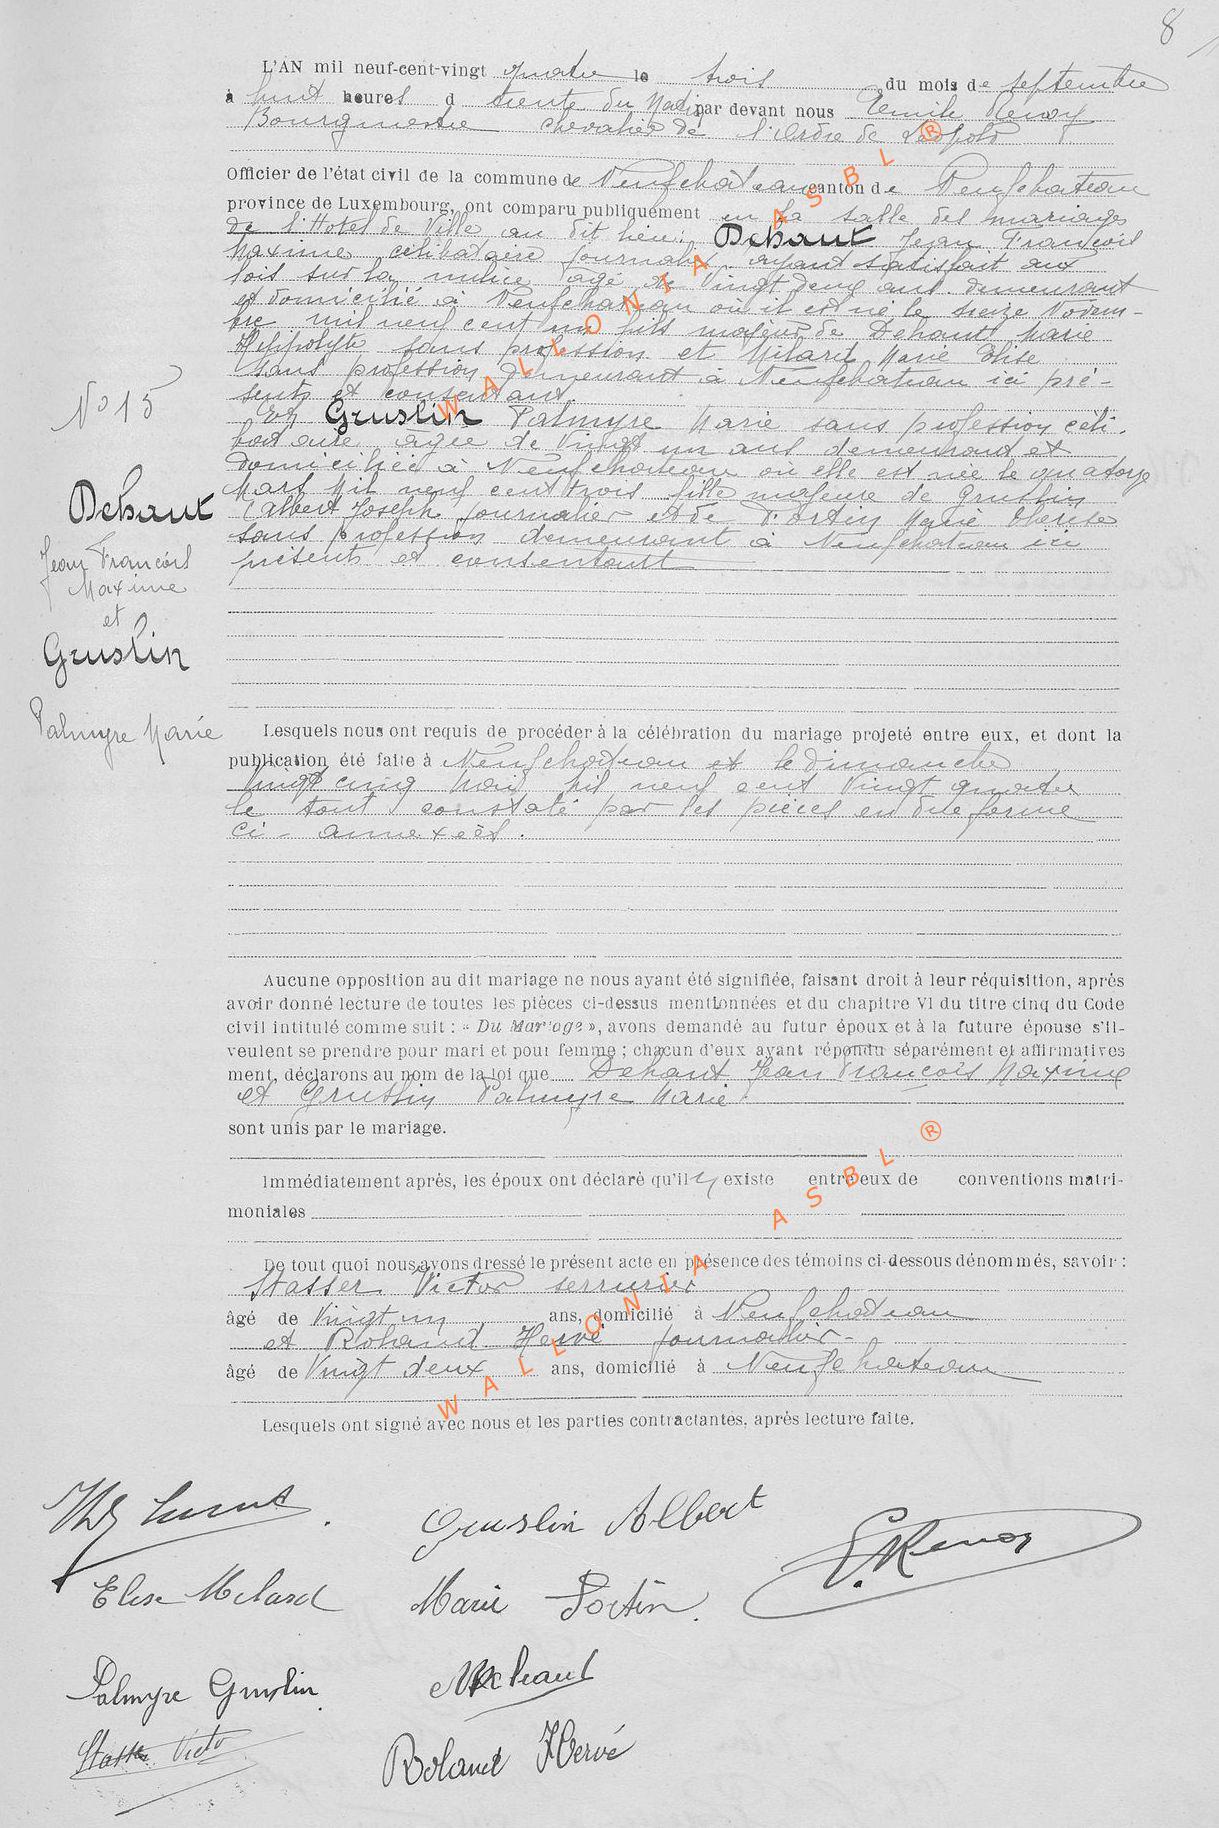 8
L'AN mil neuf-cent-vingt quatre le trois du mois de septembre
à huit heures d trente du Matin par devant nous Emile Renoy
Bourgmestre chevalier de l'Ordre de Léopold
Officier de l'état civil de la commune de Neufchateau canton de Neufchateau
province de Luxembourg, ont comparu publiquement en la salle des mariages
de l'Hotel de Ville au dit lieu: Dehaut Jean François
Maxime célibataire journalier ayant satisfait aux
lois sur la milice âgé de Vingt deux ans demeurant
et domicilié à Neufchateau où il est né le seize Novem-
bre mil neuf cent un fils majeur de Dehaut Marie
Hippolyte sans profession et Milard Marie Elise
sans profession demeurant à Neufchateau ici pré-
sents et consentant.
N° 15
Et Gruslin Palmyre Marie sans profession céli-
bataire âgée de Vingt un ans demeurant et
domiciliée à Neufchateau où elle est née le quatorze
Mars Mil neuf cent trois fille majeure de Gruslin
Albert Joseph journalier et de Fortin Marie Thérèse
sans profession demeurant à Neufchateau ici
présents et consentant
Dehaut
Jean François
Maxime
et
Gruslin
Palmyre Marie
Lesquels nous ont requis de procéder à la célébration du mariage projeté entre eux, et dont la
publication été faite à Neufchateau et le dimanche
Vingt cinq Mai Mil neuf cent Vingt quatre
le tout constaté par les pièces en due forme
ci-annexées.
Aucune opposition au dit mariage ne nous ayant été signifiée, faisant droit à leur réquisition, après
avoir donné lecture de toutes les pièces ci-dessus mentionnées et du chapitre VI du titre cinq du Code
civil intitulé comme suit : « Du Mariage », avons demandé au futur époux et à la future épouse s'il-
veulent se prendre pour mari et pour femme ; chacun d'eux ayant répondu séparément et affirmatives
ment, déclarons au nom de la loi que Dehaut Jean François Maxime
et Gruslin Palmyre Marie
sont unis par le mariage.
Immédiatement après, les époux ont déclaré qu'il n'existe entre eux de conventions matri-
moniales
De tout quoi nous avons dressé le présent acte en présence des témoins ci-dessous dénommés, savoir :
Stasser Victor serrurier
âgé de Vingt un ans, domicilié à Neufchateau
et Roland Hervé journalier
âgé de Vingt deux ans, domicilié à Neufchateau
Lesquels ont signé avec nous et les parties contractantes, après lecture faite.
Gruslin Albert
E. Renoy
Elise Milard Marie Fortin.
Palmyre Gruslin Dehaut
Stasser Victor
Roland Hervé
WALLONIA ASBL ®
WALLONIA ASBL ®